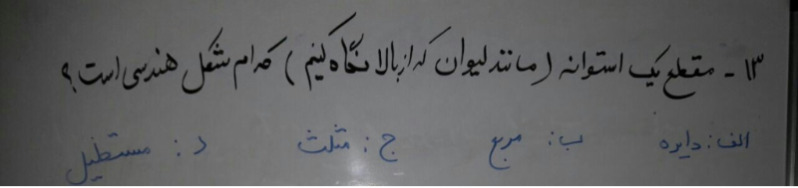 ۱۳ - مقطع یک استوانه (مانند لیوان که از بالا نگاه کنیم) کدام شکل هندسی است؟
الف: دایره ب: مربع ج: مثلث د: مستطیل